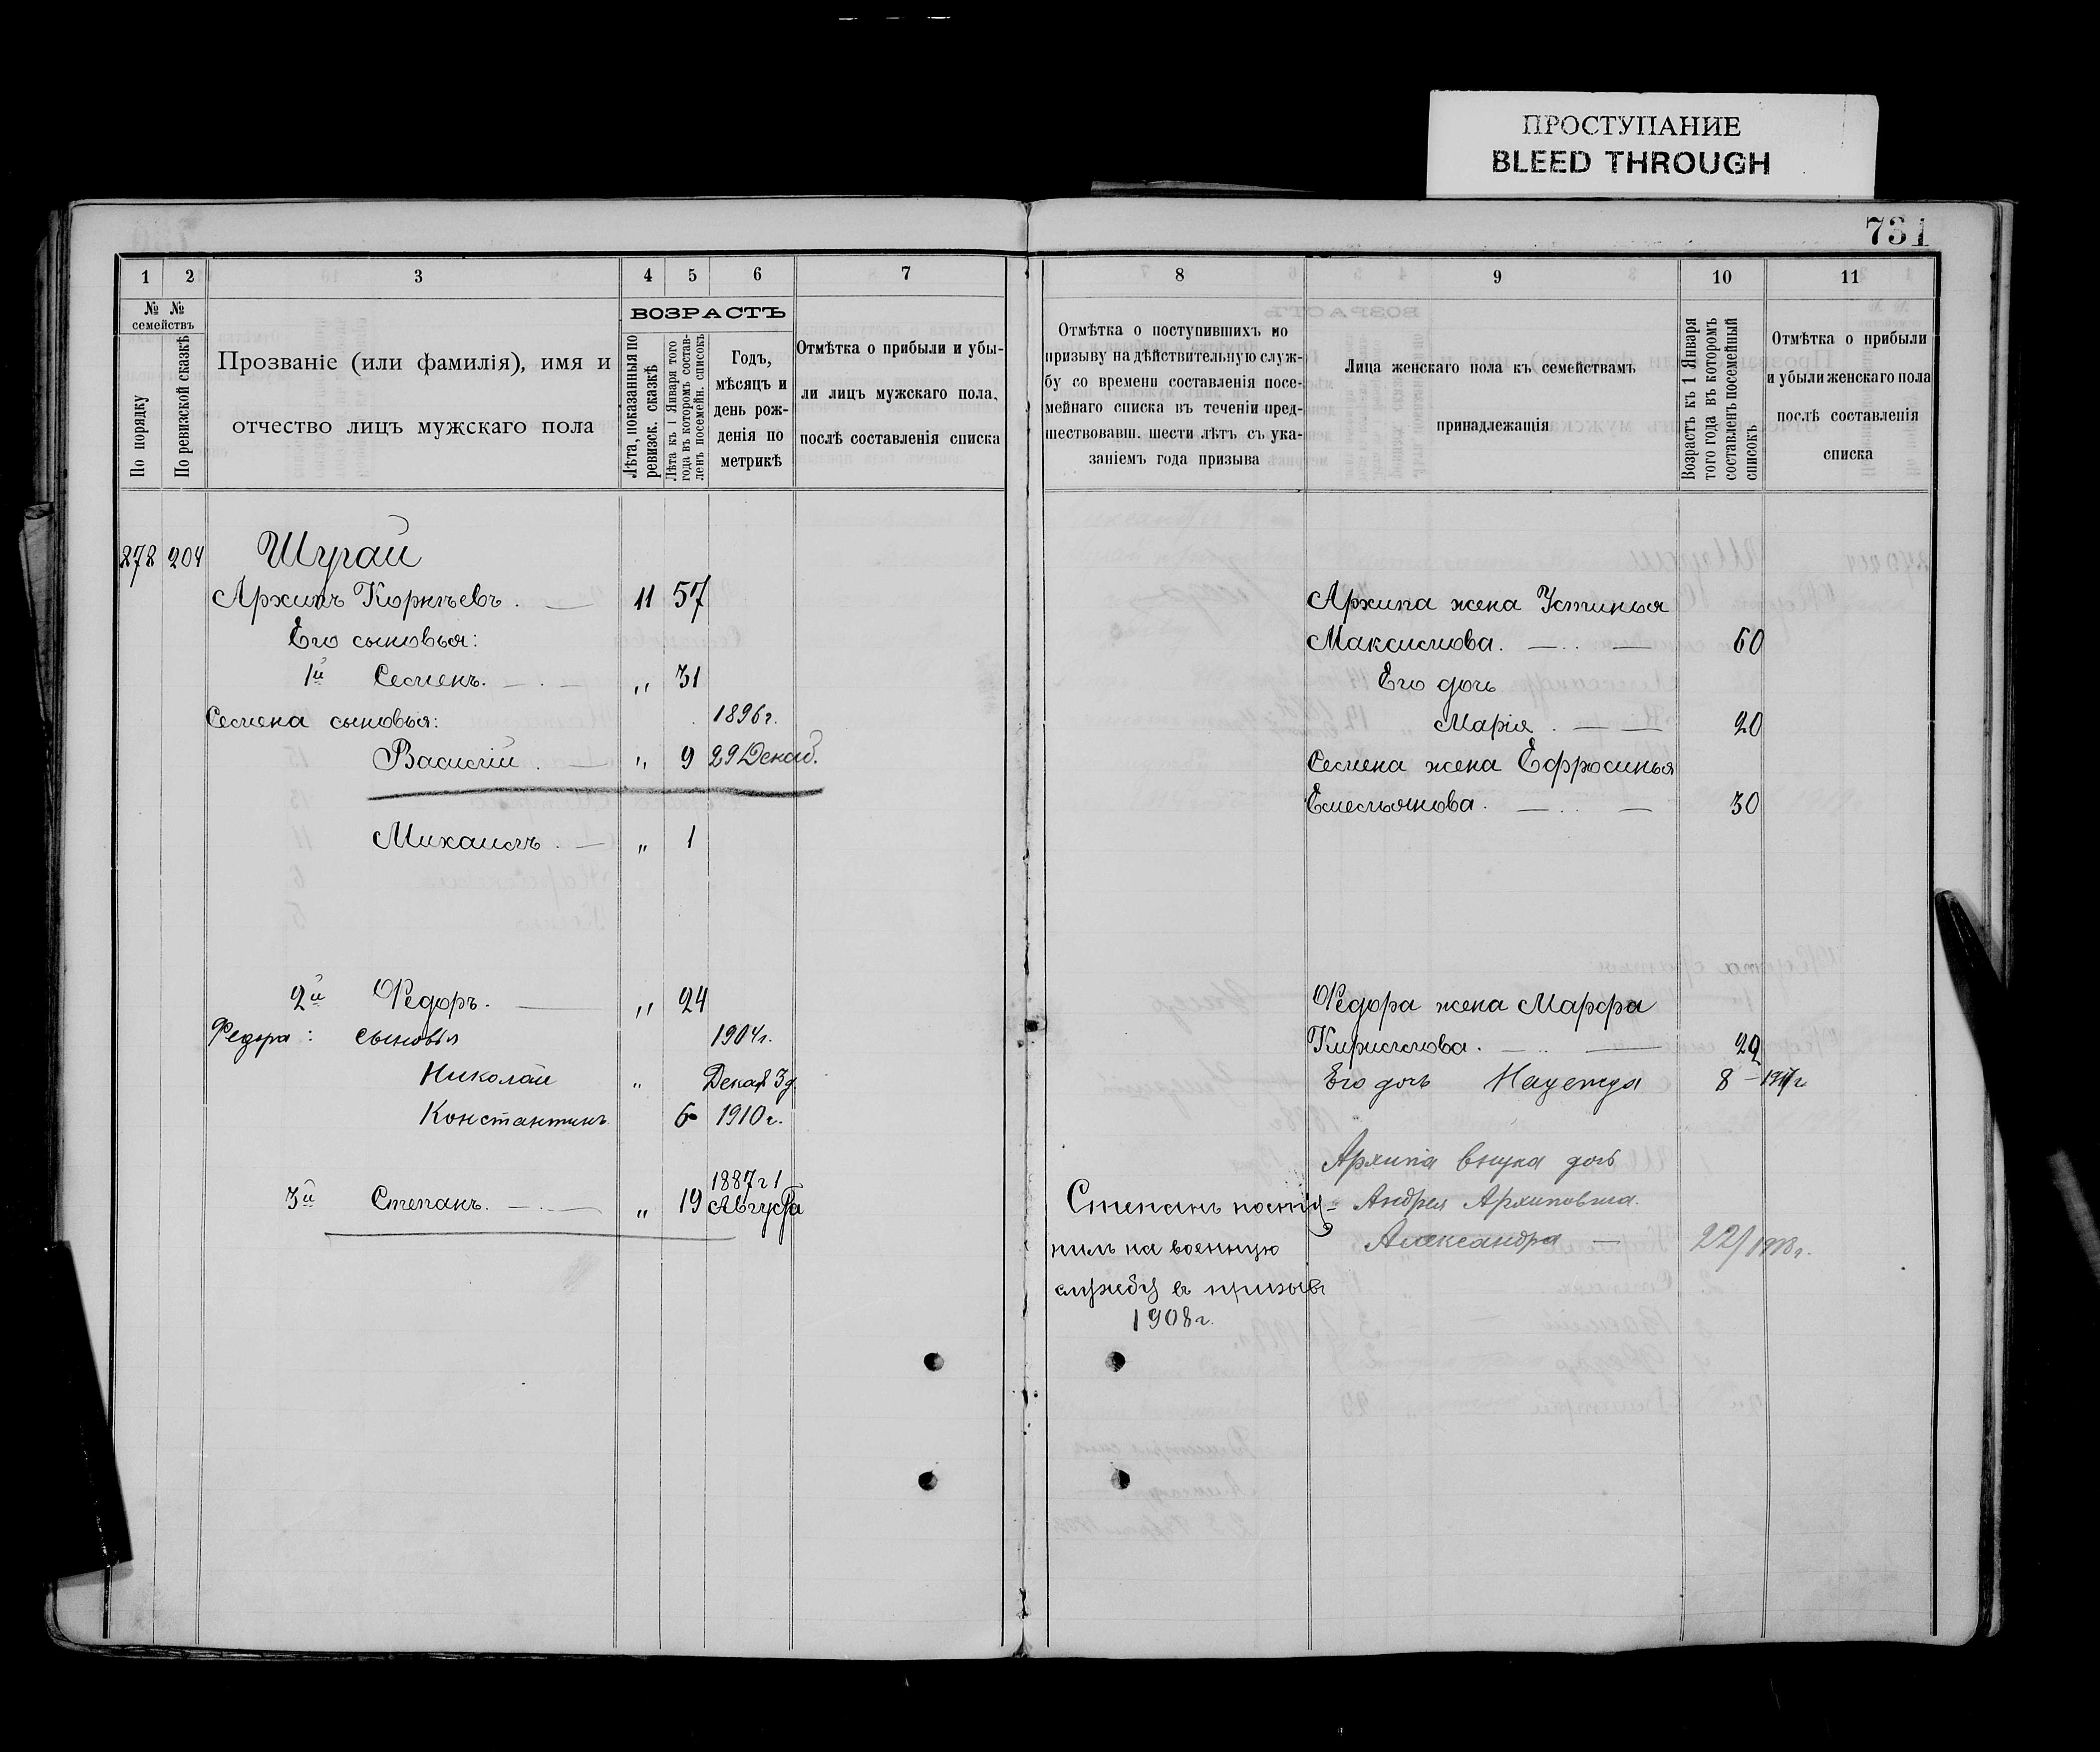 ПРОСТУПАНИЕ
BLEED THROUGH
731
1 2 3 4 5 6 7
№ № семействъ
По порядку
По ревизской сказкѣ
Прозваніе (или фамилія), имя и
отчество лицъ мужскаго пола
ВОЗРАСТЪ
Лѣта, показанныя по ревизск. сказкѣ
Лѣта къ 1 Января того года въ котором состав-ленъ посемейн. списокъ
Годъ,
мѣсяцъ и
день рож-
денія по
метрикѣ
Отмѣтка о прибыли и убы-
ли лицъ мужского пола,
послѣ составленія списка
878 204 Шурай
Архипъ Корнѣевъ. 11 57
Его сыновья:
1й Семенъ. „ 31
Семена сыновья: 1896г.
Василій. „ 9 29 Декаб.
Михаилъ. „ 1
2й Ѳедоръ. „ 24
Федора: сыновья 1904г.
Николай „ Декаб 3д
Константинъ 6 1910г.
1887г 1
3й Степанъ. „ 19 Августа
8 9 10 11
Отмѣтка о поступившихъ по
призыву на дѣйствительную служ-
бу со времени составленія посе-
мейнаго списка въ теченіи пред-
шествовавш. шести лѣтъ съ ука-
заніемъ года призыва
Лица женскаго пола къ семействамъ
принадлежащія
Возрастъ къ 1 Января того года въ котором составленъ посемейный списокъ
Отмѣтка о прибыли
и убыли женскаго пола
послѣ составленія
списка
Архипа жена Устинья
Максимова. 60
Его дочь
Марія. 20
Семена жена Ефросинья
Емельянова. 30
Ѳедора жена Марфа
Кириллова. 22
Его дочь Надежда 8 – 1917г
Архипа внука дочь
Андрея Архиповича.
Александра – 22/1918г.
Степанъ посту-
пилъ на военную
службу въ призывъ
1908г.